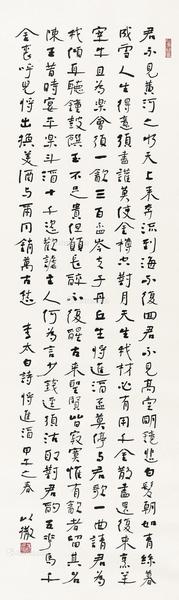 君不見黃河之水天上來奔流到海不復回君不見高堂明鏡悲白髮朝如青絲暮
成雪人生得意須盡歡莫使金樽空對月天生我材必有用千金散盡還復來烹羊
宰牛且為樂會須一飲三百盃岑夫子丹丘生將進酒盃莫停與君歌一曲請君為
我傾耳聽鐘鼓饌玉不足貴但願長醉不復醒古來聖賢皆寂寞惟有飲者留其名
陳王昔時宴平樂斗酒十千恣歡謔主人何為言少錢徑須沽取對君酌五花馬千
金裘呼兒將出換美酒與爾同銷萬古愁 李太白詩將進酒 甲子之春